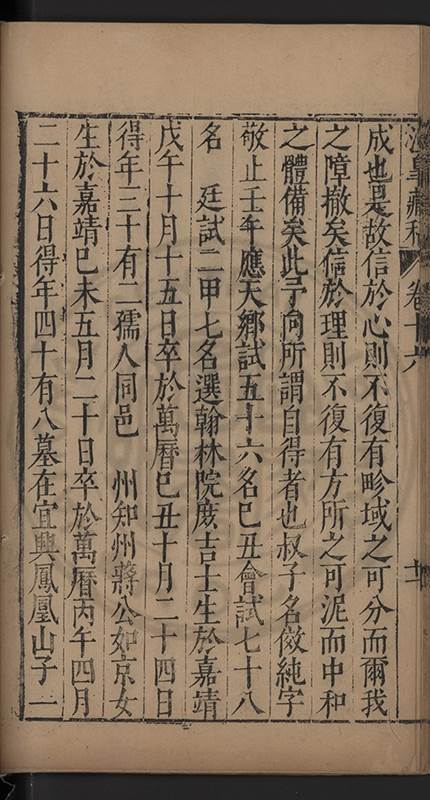 卷十六
成也是故信於心則不復有畛域之可分而爾我
之障撤矣信於理則不復有方所之可泥而中和
之體備矣此子向所謂自得者也叔子名儆純字
敬止壬午應天鄉試五十六名己丑會試七十八
名　廷試二甲七名選翰林院庶吉士生於嘉靖
戊午十月十五日卒於萬曆己丑十月二十四日
得年三十有二孺人同邑　州知州蔣公如京女
生於嘉靖己未五月二十日卒於萬曆丙午四月
二十六日得年四十有八墓在宜興鳳凰山子一